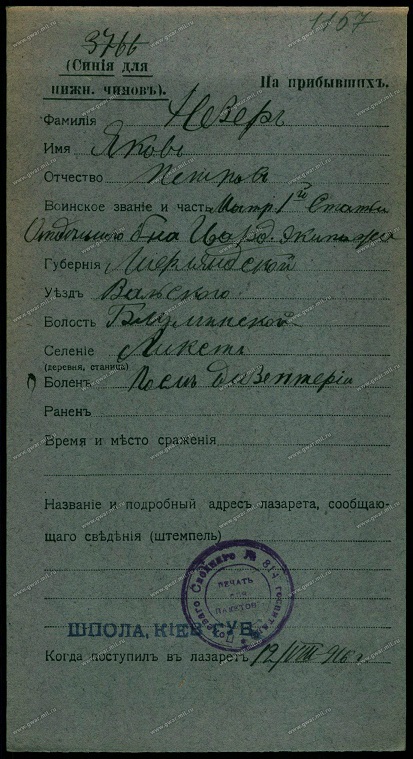 1167
3766
(Синія для
нижн. чиновъ).
На прибывшихъ.
Фамилія Неверъ
Имя Яковъ
Отчество Петровъ
Воинское званіе и часть Матр. 1й Статьи
Отдѣльнаго б-на Гвард. экипажа
Губернія
Уѣздъ
Волость
Селеніе
(деревня, станица)
Боленъ Послѣ дизентеріи
Раненъ
Время и мѣсто сраженія
Названіе и подробный адресъ лазарета, сообщаю-
щаго свѣдѣнія (штемпель)
Полевого Своднаго № 814 госпиталя
ПЕЧАТЬ
ДЛЯ
ПАКЕТОВЪ
ШПОЛА, КІЕВ. ГУБ.
Когда поступилъ въ лазаретъ 12/VIII 916 г.
www.gwar.mil.ru